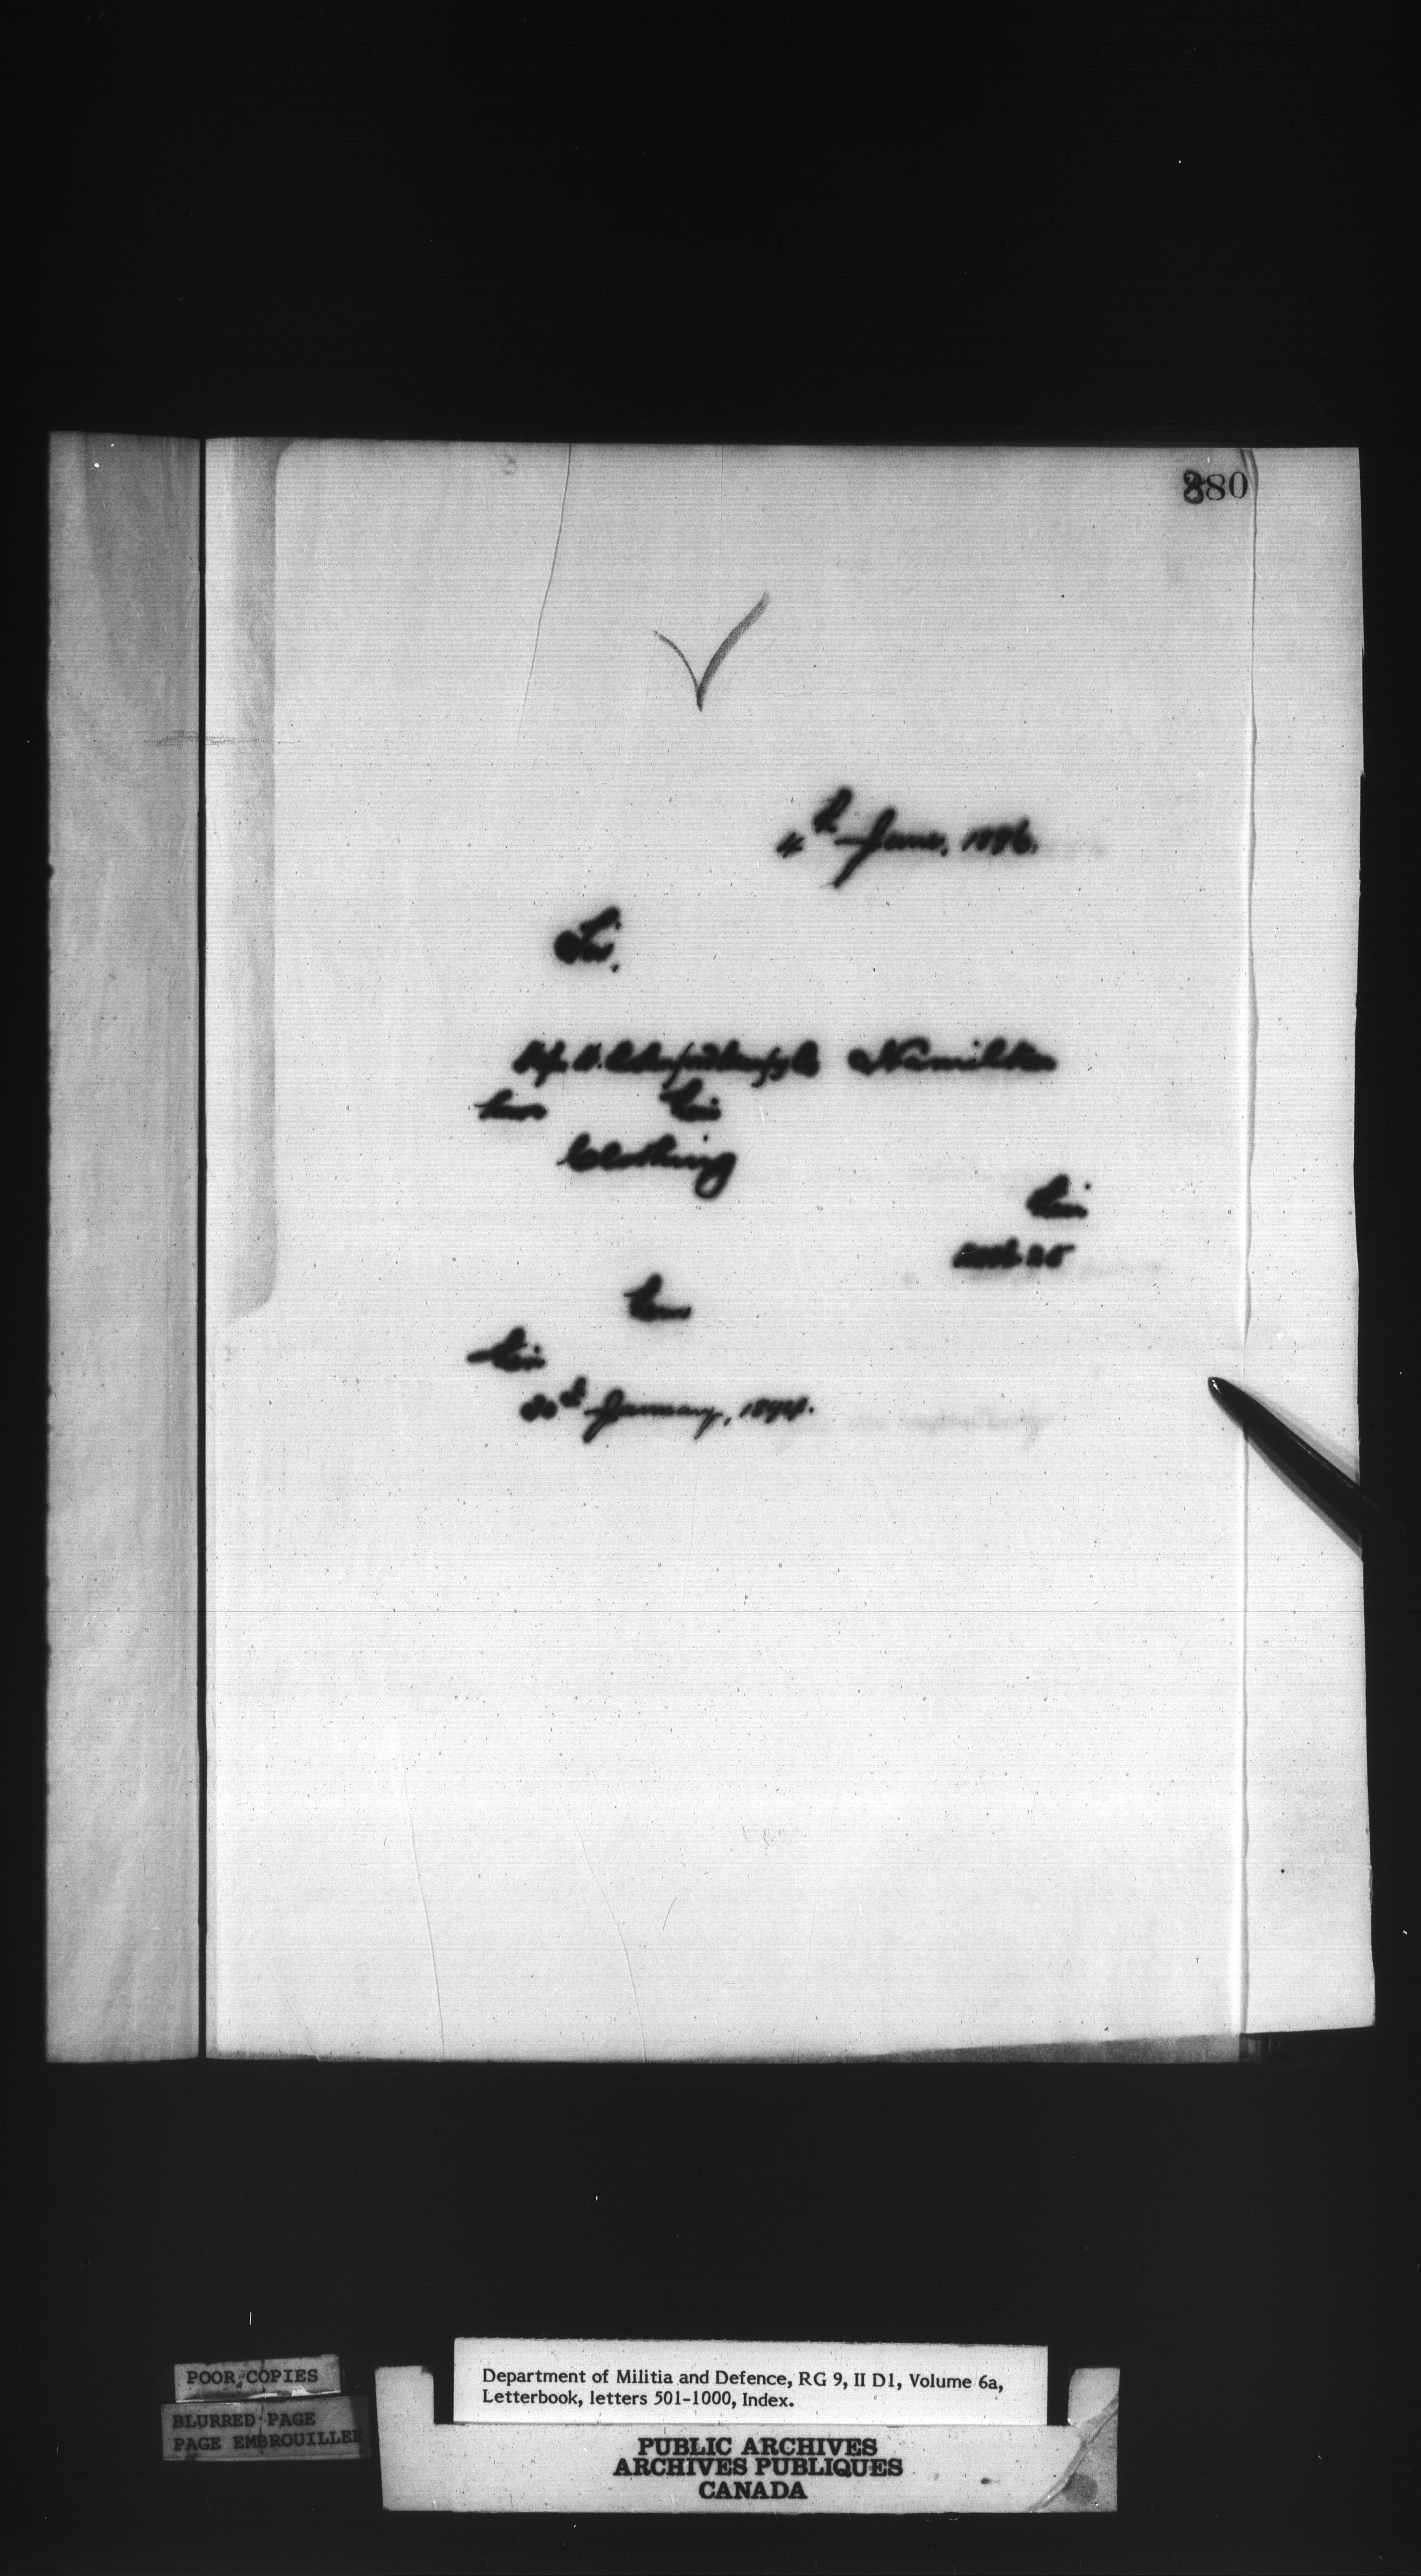 880
4th June, 1896.
Sir,
Hamilton
his
Clothing
him
him
30th January, 1894.
POOR COPIES
BLURRED PAGE
PAGE EMBROUILLEE
Department of Militia and Defence, RG 9, II D1, Volume 6a,
Letterbook, letters 501-1000, Index.
PUBLIC ARCHIVES
ARCHIVES PUBLIQUES
CANADA